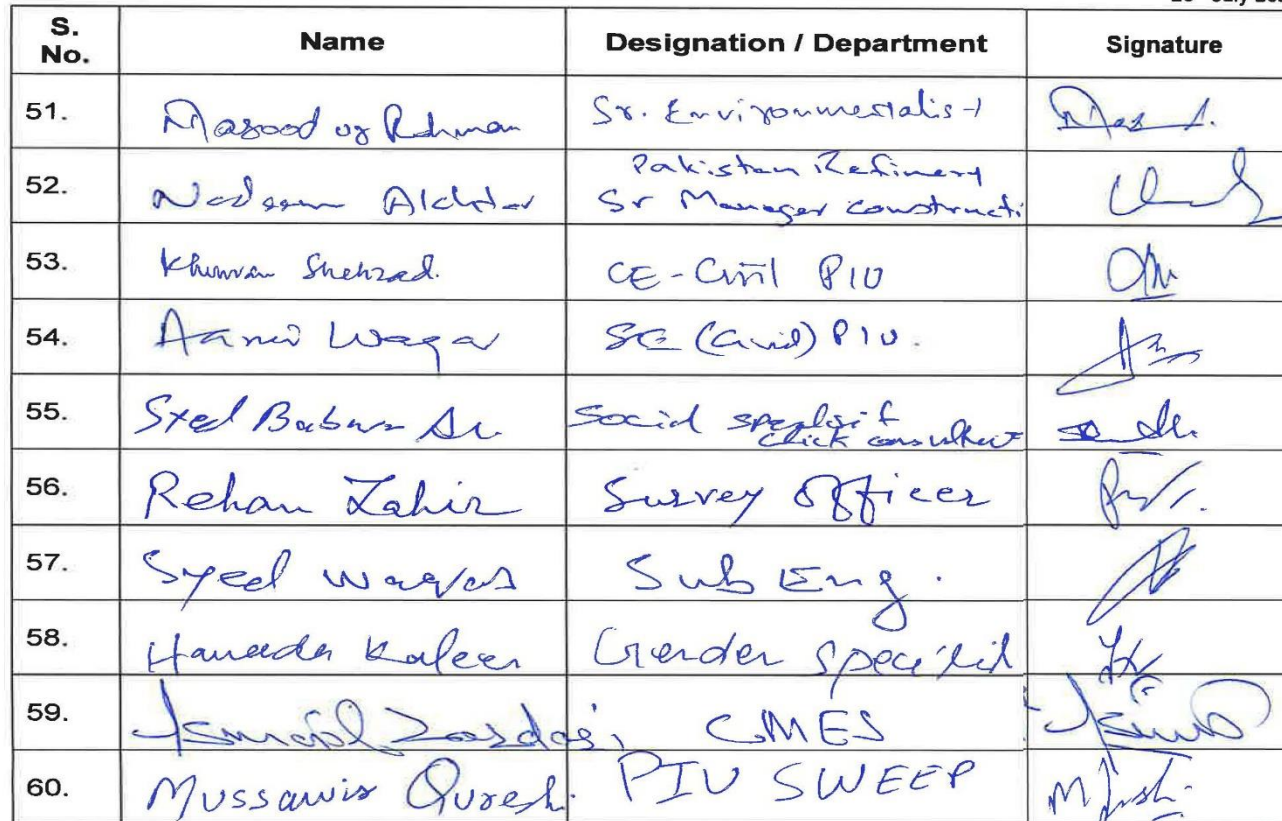 S. No. Name Designation / Department Signature
51. Masood ur Rehman Sr. Environmentalist
52. Nadeem Akhtar Pakistan Refinery
Sr Manager constructi
53. Khurram Shehzad. CE-Civil PIU
54. Aamir Waqar SE (Civil) PIU.
55. Syed Babar Social specialist
Click consultant
56. Rehan Zahir Survey Officer
57. Syed Waqas Sub Eng.
58. Kaleem Gender Specilit
59. Ismail CMES
60. Mussawir Qureshi PIU SWEEP